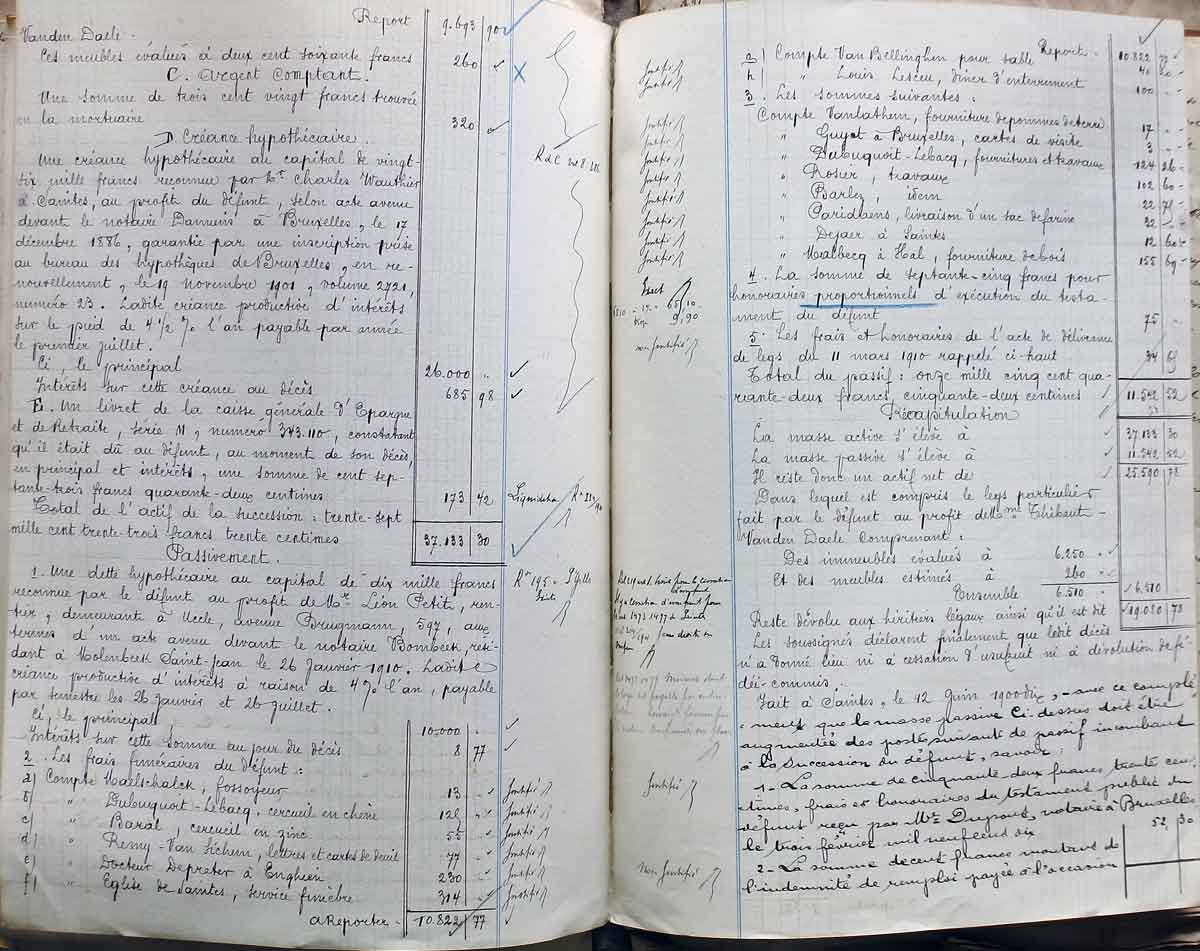 Report 9.693 90
Vanden Daele.
Ces meubles évalués à deux cent soixante francs 260
C. Argent Comptant.
Une somme de trois cent vingt francs trouvée
en la mortuaire 320
D. Créance hypothécaire.
Une créance hypothécaire au capital de vingt-
six mille francs reconnue par Mr Charles Wauthier
à Saintes, au profit du défunt, selon acte avenu
devant le notaire Damiens à Bruxelles, le 17
décembre 1886, garantie par une inscription prise
au bureau des hypothèques de Bruxelles, en re-
nouvellement, le 19 novembre 1901, volume 2721,
numéro 23. Ladite créance productive d'intérêts
sur le pied de 4 1/2 % l'an payable par année
le premier juillet.
Ci, le principal 26.000 "
Intérêts sur cette créance au décès 685 98
E. Un livret de la caisse générale d'Epargne
et de Retraite, série M, numéro 343.110, constatant
qu'il était dû au défunt, au moment de son décès,
en principal et intérêts, une somme de cent sep-
tante-trois francs quarante-deux centimes 173 42
Total de l'actif de la succession : trente-sept
mille cent trente-trois francs trente centimes 37.133 30
Passivement.
1. Une dette hypothécaire au capital de dix mille francs
reconnue par le défunt au profit de Mr Léon Petit, ren-
tier, demeurant à Uccle, avenue Brugmann, 597, aux
termes d'un acte avenu devant le notaire Bombeek, rési-
dant à Molenbeek Saint-Jean le 26 Janvier 1910. Ladite
créance productive d'intérêts à raison de 4 % l'an, payable
par semestre les 26 Janvier et 26 Juillet.
Ci, le principal 10.000 "
Intérêts sur cette somme au jour du décès 8 77
2. Les frais funéraires du défunt :
a) Compte Maelschalck, fossoyeur 13
b) " Dubuquoit-Lebacq, cercueil en chêne
c) " Baral, cercueil en zinc 55
d) " Remy-Van Lichem, lettres et cartes de deuil 77
e) " Docteur Depreter à Enghien 230
f) " Eglise de Saintes, service funèbre 314
à Reporter 10.822 77
Justifié
Justifié
Justifié
Justifié
Justifié
Justifié
Report 10.822 77
g) Compte Van Bellinghen pour sable
h) " Louis Lesceu, dîner d'enterrement 100
3. Les sommes suivantes :
Compte Vanlathem, fourniture de pommes de terre 17
" Guyot à Bruxelles, cartes de visite 3
" Dubuquoit-Lebacq, fournitures et travaux 124 26
" Rosier, travaux 102 60
" Barlez, idem 22 75
" Paridaens, livraison d'un sac de farine 32
" Dejaer à Saintes 12 60
" Malbecq à Hal, fourniture de bois 155 69
4. La somme de septante-cinq francs pour
honoraires proportionnels d'exécution du testa-
ment du défunt 75
5. Les frais et honoraires de l'acte de délivrance
de legs du 11 mars 1910 rappelé ci-haut 34
Total du passif : onze mille cinq cent qua-
rante-deux francs, cinquante-deux centimes 11.542 52
Récapitulation
La masse active s'élève à 37.133 30
La masse passive s'élève à 11.542 52
Il reste donc un actif net de 25.590 78
Dans lequel est compris le legs particulier
fait par le défunt au profit de Mme Thibaut-
Vanden Daele Comprenant :
Des immeubles évalués à 6.250
Et des meubles estimés à 260
Ensemble 6.510 6.510
Reste dévolu aux héritiers légaux ainsi qu'il est dit 19.080 78
Les soussignés déclarent finalement que ledit décès
n'a donné lieu ni à cessation d'usufruit ni à dévolution de fi-
déi-commis.
Fait à Saintes, le 12 Juin 1900 dix, - avec ce complé-
ment que la masse passive Ci-dessus doit être
augmentée des postes suivant de passif incombant
à la succession du défunt, savoir :
1- La somme de cinquante-deux francs trente cen-
times, frais et honoraires du testament public du
défunt reçu par Mtre Dupont, notaire à Bruxelles
le trois février mil neuf cent dix 52, 30
2- La somme de cent francs montant de
l'indemnité de remploi payée à l'occasion
Justifié
Justifié
Justifié
Justifié
Justifié
Justifié
Justifié
Justifié
Justifié
Justifié
non justifié
Justifié
Non justifié